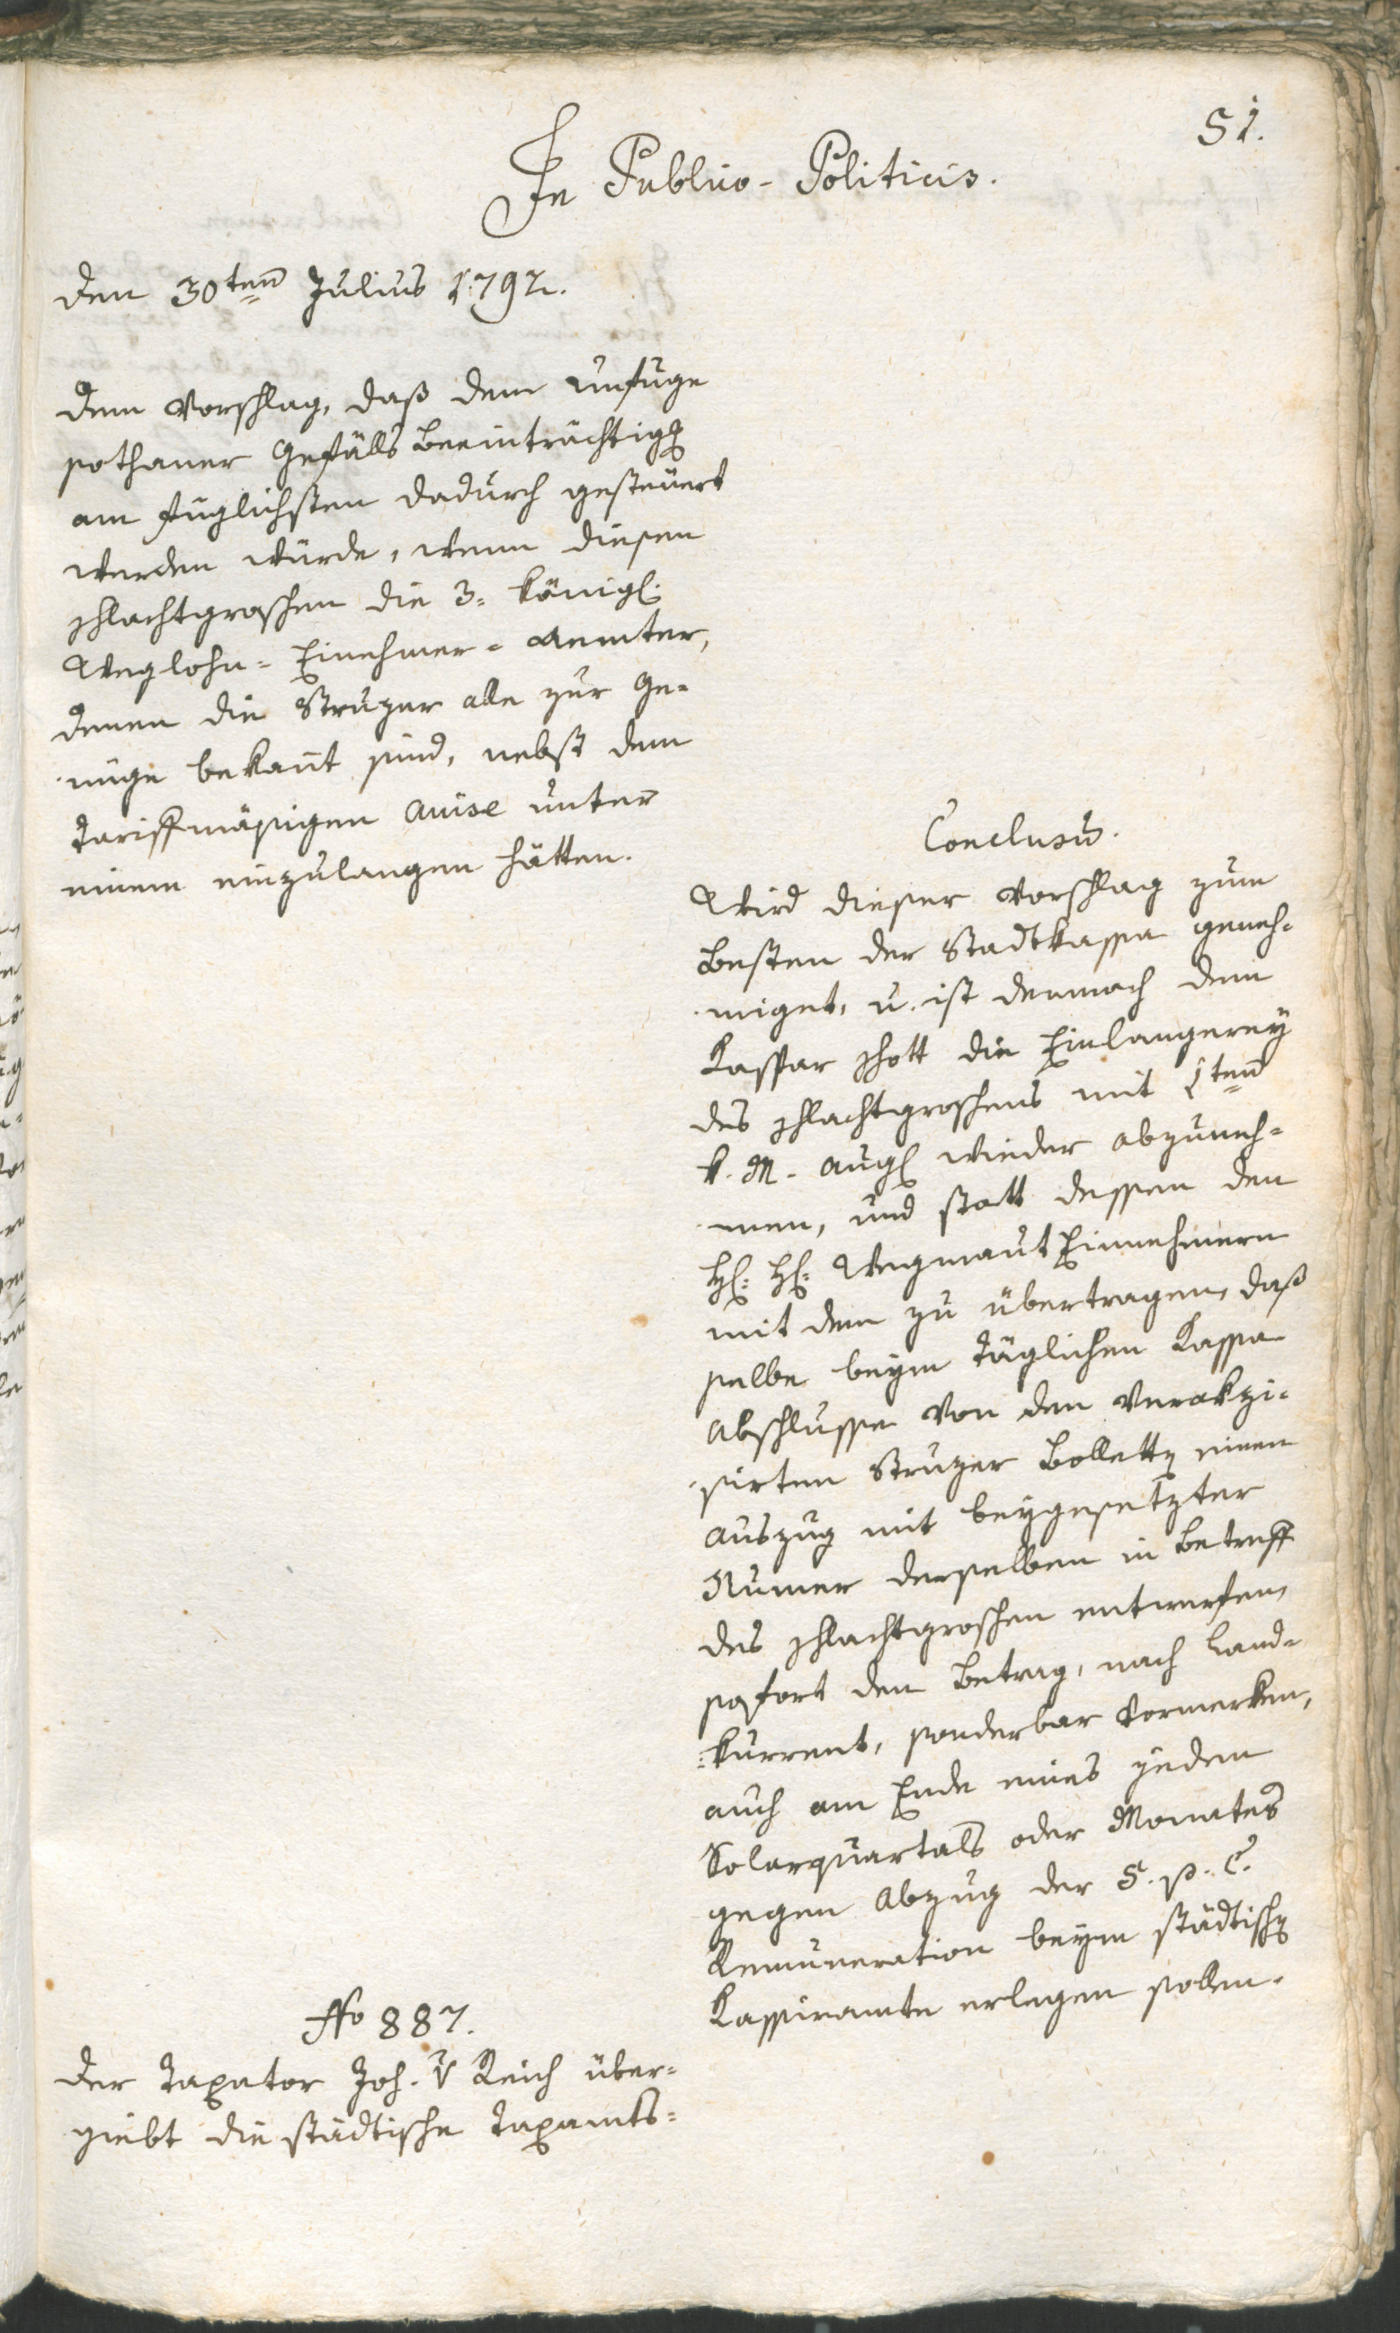 51.
In Publico-Politicis.
Den 30ten Julius 1792.
Dem Vorschlag, daß dem Unfuge
sothaner Gefälls Beeinträchtigg
am füglichsten dadurch gesteuert
werden würde, wenn diesen
schlachtgroschen die 3. königl.
Weglohn-Einehmer-Aemter,
denen die Struzer alle zur Ge-
nüge bekañt sind, nebst dem
tariffmäsigen Accise unter
einem einzulangen hätten.
Conclusũ.
Wird dieser Vorschlag zum
Besten der Stadtkassa geneh-
miget, u. ist demnach dem
Kaspar Schott die Einlangerey
des schlachtgroschens mit 1ten
k. M. Aug wieder abzuneh-
men, und statt dessen den
H: H: WegmautEinnehmern
mit dem zu übertragen, daß
selbe beym täglichen Kassa
Abschlusse von den verakzi-
sirten Struzer Bolletten einen
Auszug mit beygesetzter
Numer derselben in Betreff
des schlachtgroschen entwerfen,
sofort den Betrag, nach Land-
kurrent, sonderbar vormerken,
auch am Ende eines jeden
Solarquartals oder Monates
gegen Abzug der 5. p. C.
Remuneration beym städtischen
Kassieramte erlegen sollen.
No 887.
Der Taxator Joh. v Reich über-
giebt die städtische Taxamts-